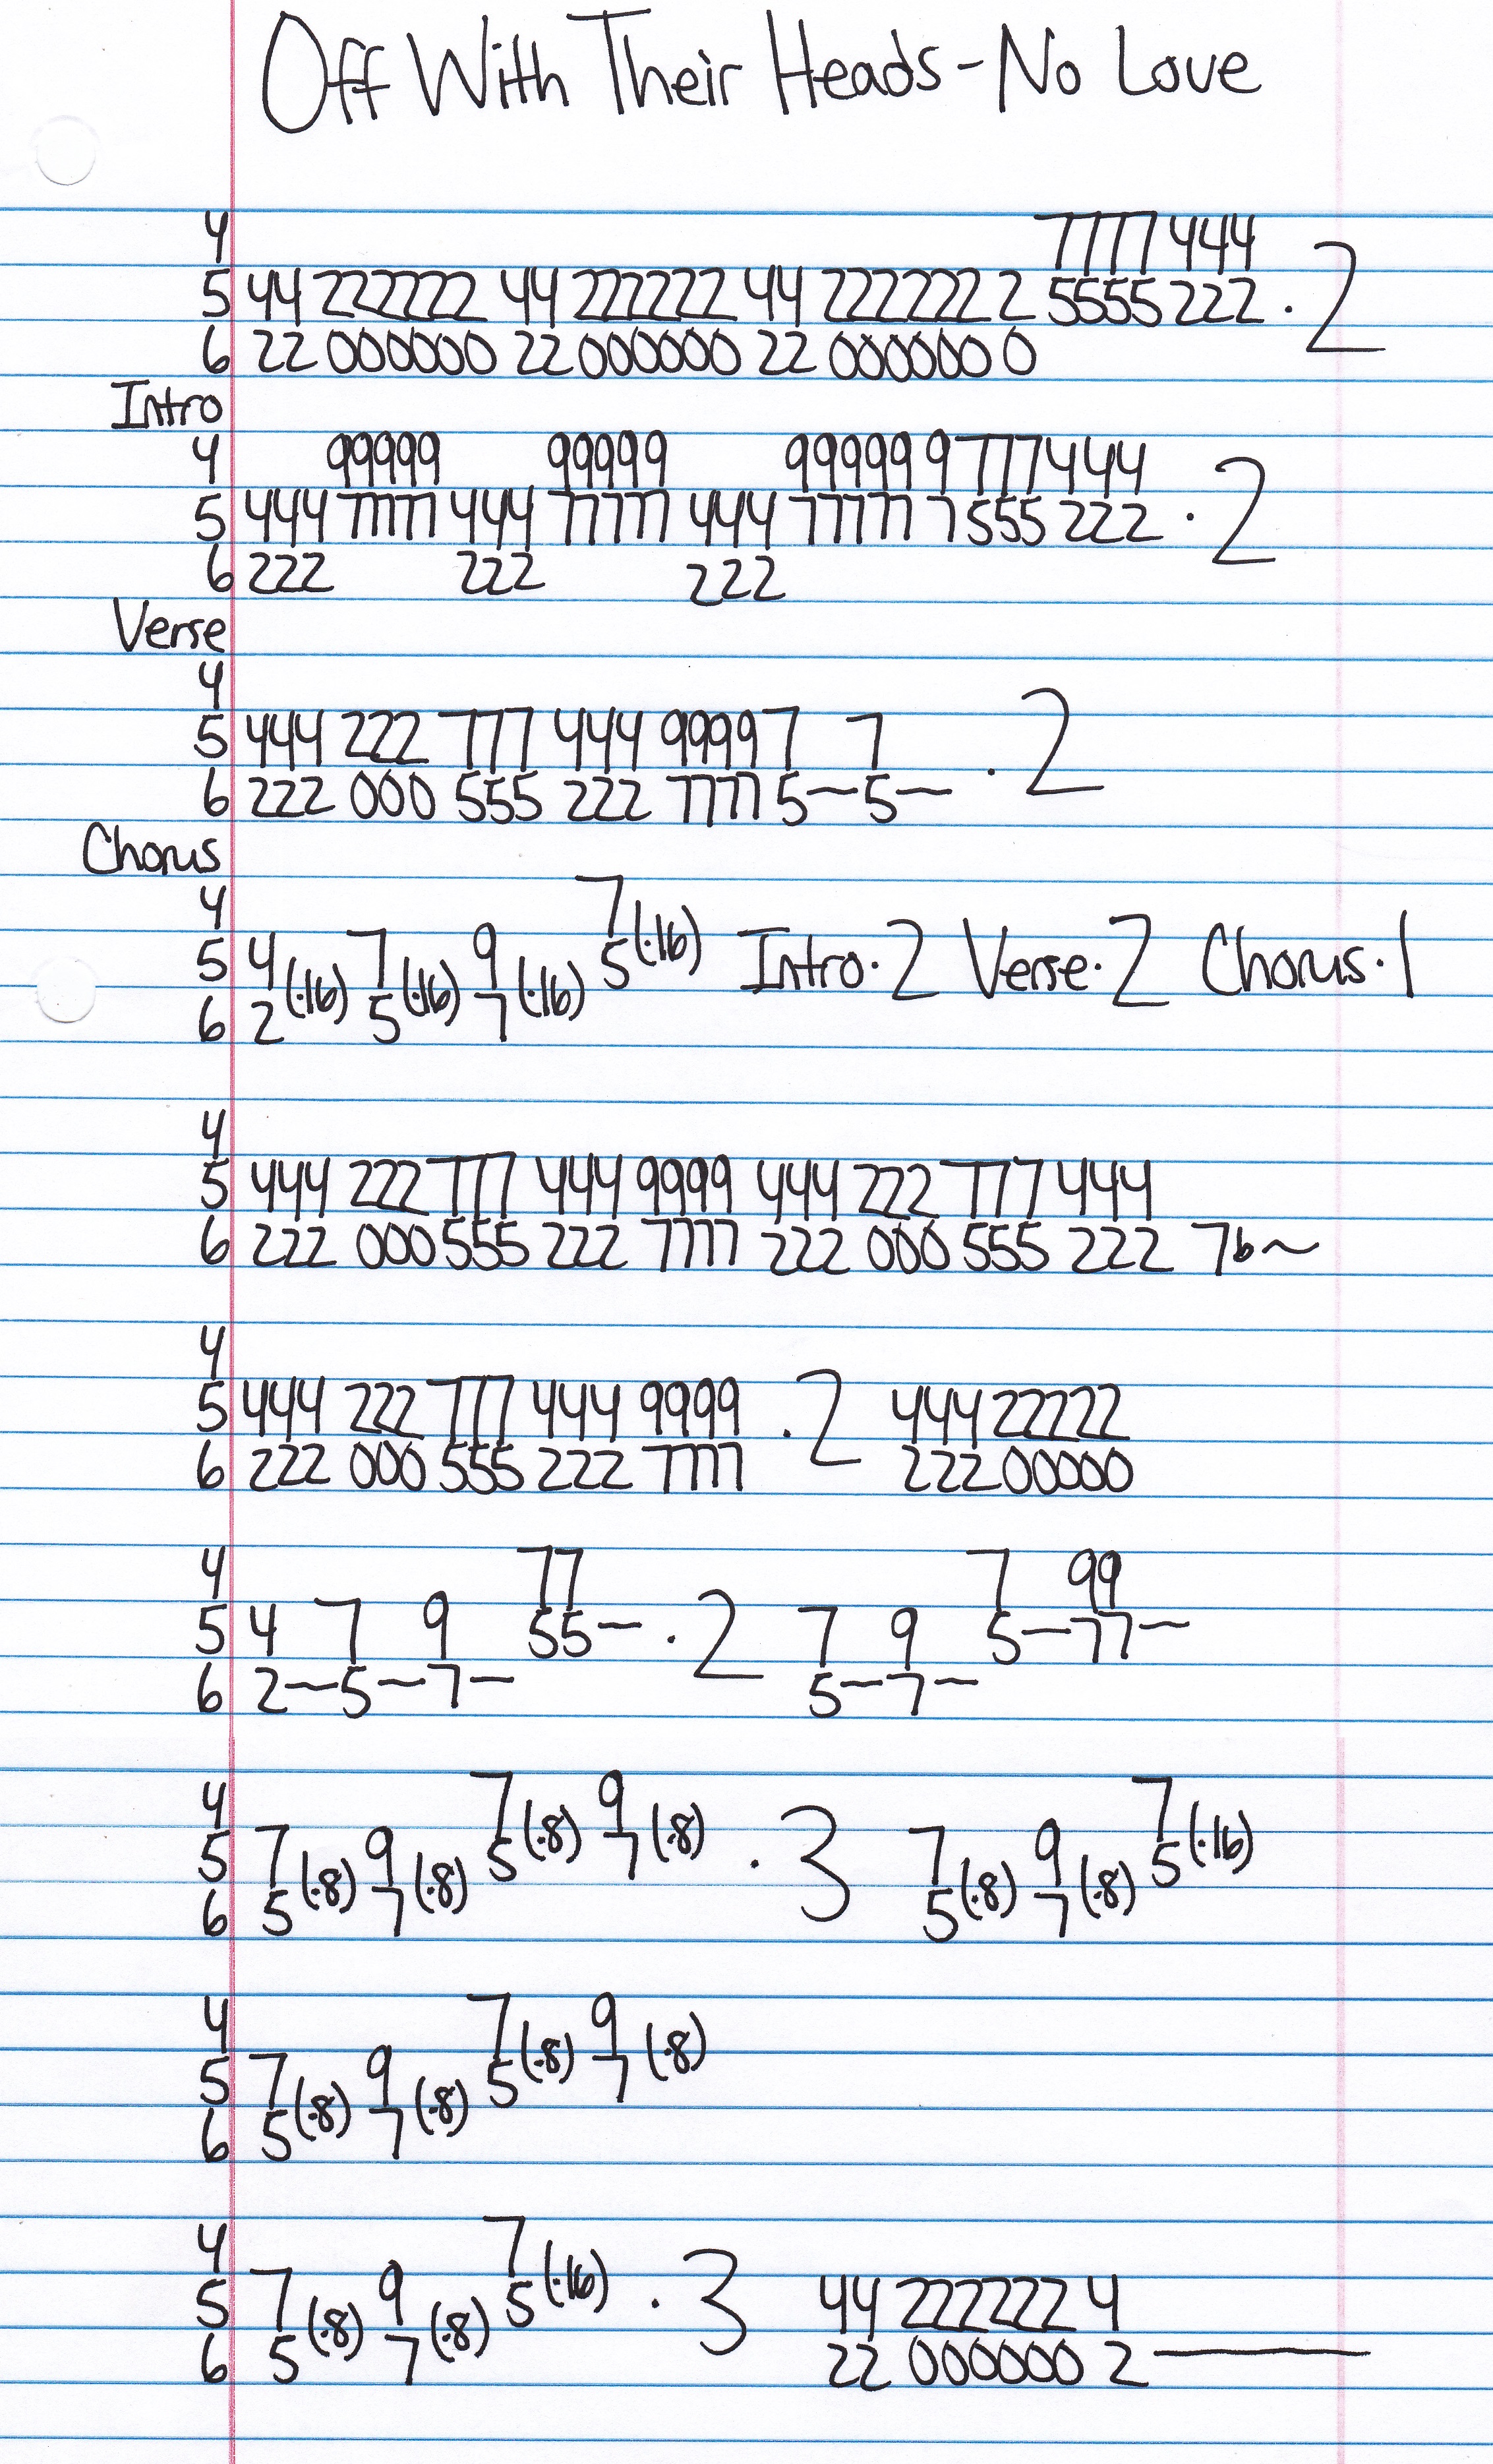 Off With Their Heads - No Love
4 7777 444
5 44 222222 44 222222 44 222222 2 5555 222 · 2
6 22 000000 22 000000 22 000000 0
Intro
4 99999 99999 99999 9 777 444
5 444 77777 444 77777 444 77777 7 555 222 · 2
6 222 222 222
Verse
4
5 444 222 777 444 9999 7 7 · 2
6 222 000 555 222 7777 5~5~
Chorus
4 7
5 4 (·16) 7 (·16) 9 (·16) 5 (·16) Intro·2 Verse·2 Chorus·1
6 2 5 7
4
5 444 222 777 444 9999 444 222 777 444
6 222 000 555 222 7777 222 000 555 222 7b~
4
5 444 222 777 444 9999 · 2 444 22222
6 222 000 555 222 7777 222 00000
4 77 7 99
5 4 7 9 55~ · 2 7 9 5~77~
6 2~5~7~ 5~7~
4 7 (·8) 9 (·8) 7 (·16)
5 7 (·8) 9 (·8) 5 7 · 3 7 (·8) 9 (·8) 5
6 5 7 5 7
4 7 (·8) 9 (·8)
5 7 (·8) 9 (·8) 5 7
6 5 7
4 7
5 7 (·8) 9 (·8) 5 (·16) · 3 44 222222 4
6 5 7 22 000000 2——